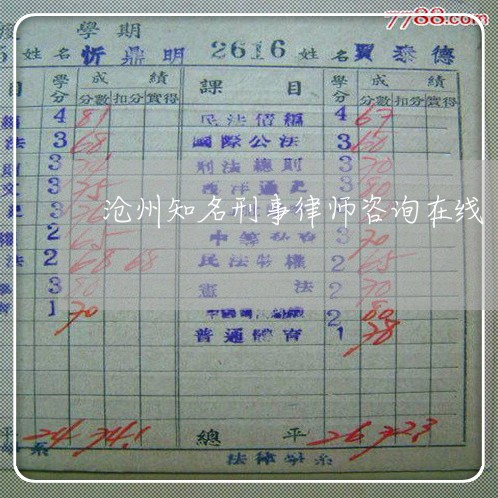 7788.com
學期
5 姓名 忻鼎明 2616 姓名 賈泰德
目 學分 成績 課目 學分 成績
分數 扣分 實得 分數 扣分 實得
4 81 民法債編 4 67
法 3 68 國際公法 3 60
3 刑法總則 3 70
3 75 西洋通史 3 80
沧州知名刑事律师咨询在线
2 65 3 70
法 2 68 68 民法物權 2 65
3 80 憲法 2 70
1 70 2 80
普通體育 1 78
平 24 74.1 總平 26 72.3
系 法律學系